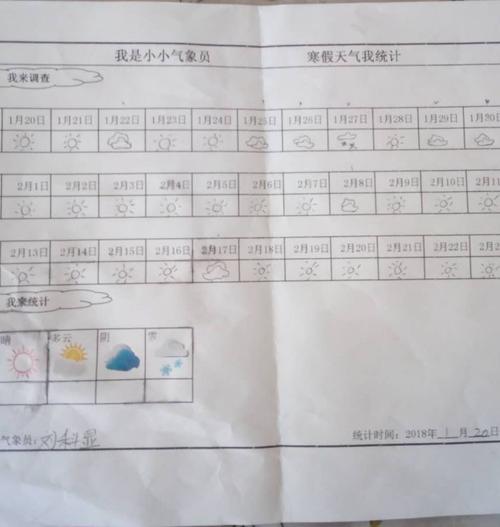 我是小小气象员 寒假天气我统计
我来调查
1月20日 1月21日 1月22日 1月23日 1月24日 1月25日 1月26日 1月27日 1月28日 1月29日 1月30日
2月1日 2月2日 2月3日 2月4日 2月5日 2月6日 2月7日 2月8日 2月9日 2月10日 2月11
2月13日 2月14日 2月15日 2月16日 2月17日 2月18日 2月19日 2月20日 2月21日 2月22日 2月2
我来统计
晴 多云 阴 雪
气象员: 刘科显 统计时间: 2018年 1 月 20 日